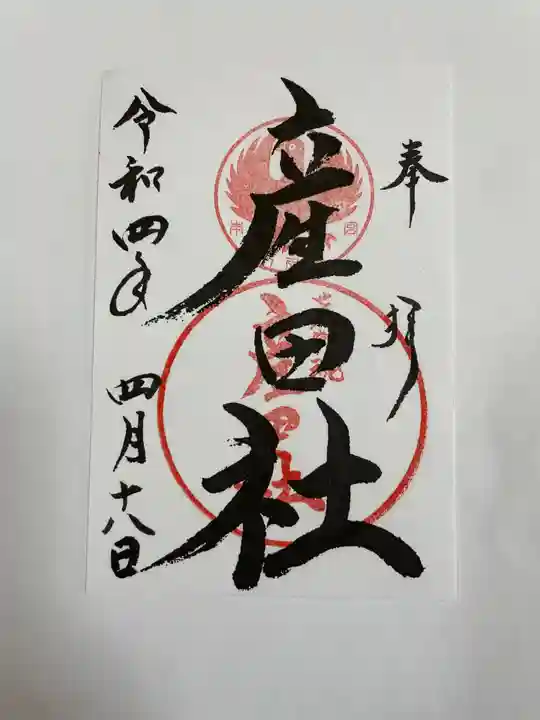 奉拝
産田社
令和四年 四月十八日